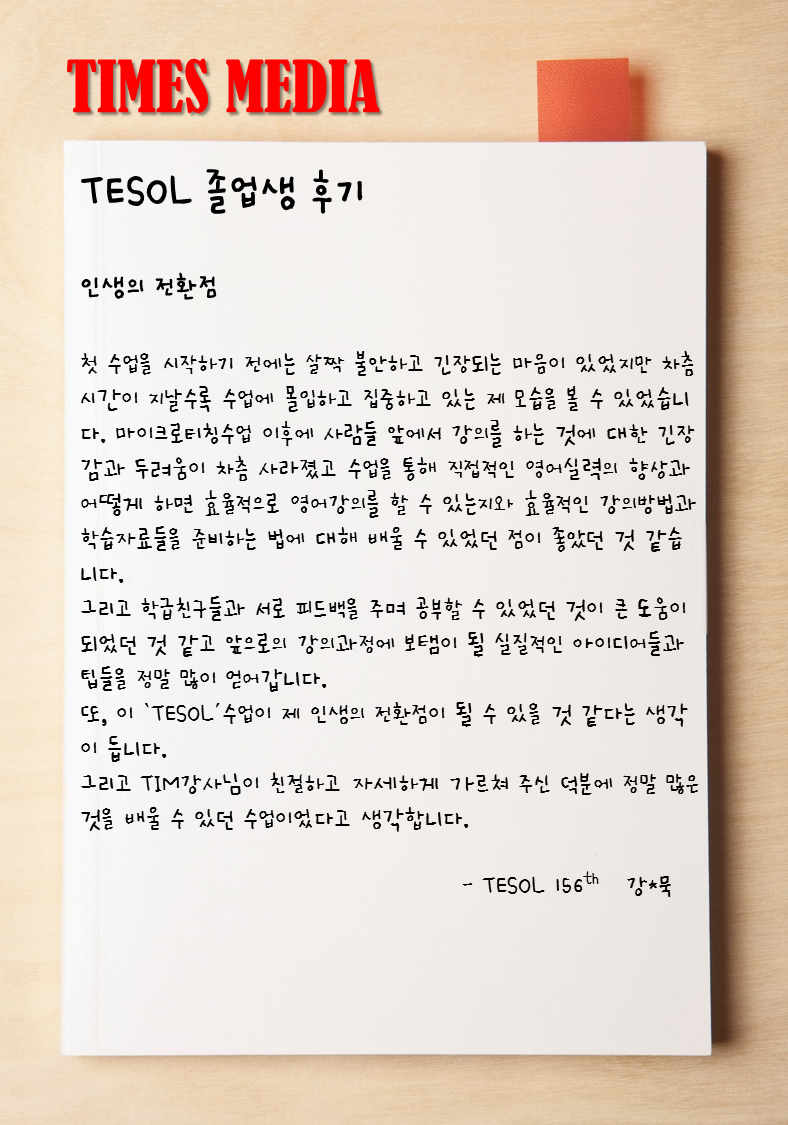 TIMES MEDIA
TESOL 졸업생 후기
인생의 전환점
첫 수업을 시작하기 전에는 살짝 불안하고 긴장되는 마음이 있었지만 차츰
시간이 지날수록 수업에 몰입하고 집중하고 있는 제 모습을 볼 수 있었습니
다. 마이크로티칭수업 이후에 사람들 앞에서 강의를 하는 것에 대한 긴장
감과 두려움이 차츰 사라졌고 수업을 통해 직접적인 영어실력의 향상과
어떻게 하면 효율적으로 영어강의를 할 수 있는지와 효율적인 강의방법과
학습자료들을 준비하는 법에 대해 배울 수 있었던 점이 좋았던 것 같습
니다.
그리고 학급친구들과 서로 피드백을 주며 공부할 수 있었던 것이 큰 도움이
되었던 것 같고 앞으로의 강의과정에 보탬이 될 실질적인 아이디어들과
팁들을 정말 많이 얻어갑니다.
또, 이 ‘TESOL’수업이 제 인생의 전환점이 될 수 있을 것 같다는 생각
이 듭니다.
그리고 TIM강사님이 친절하고 자세하게 가르쳐 주신 덕분에 정말 많은
것을 배울 수 있던 수업이었다고 생각합니다.
- TESOL 156th 강*묵